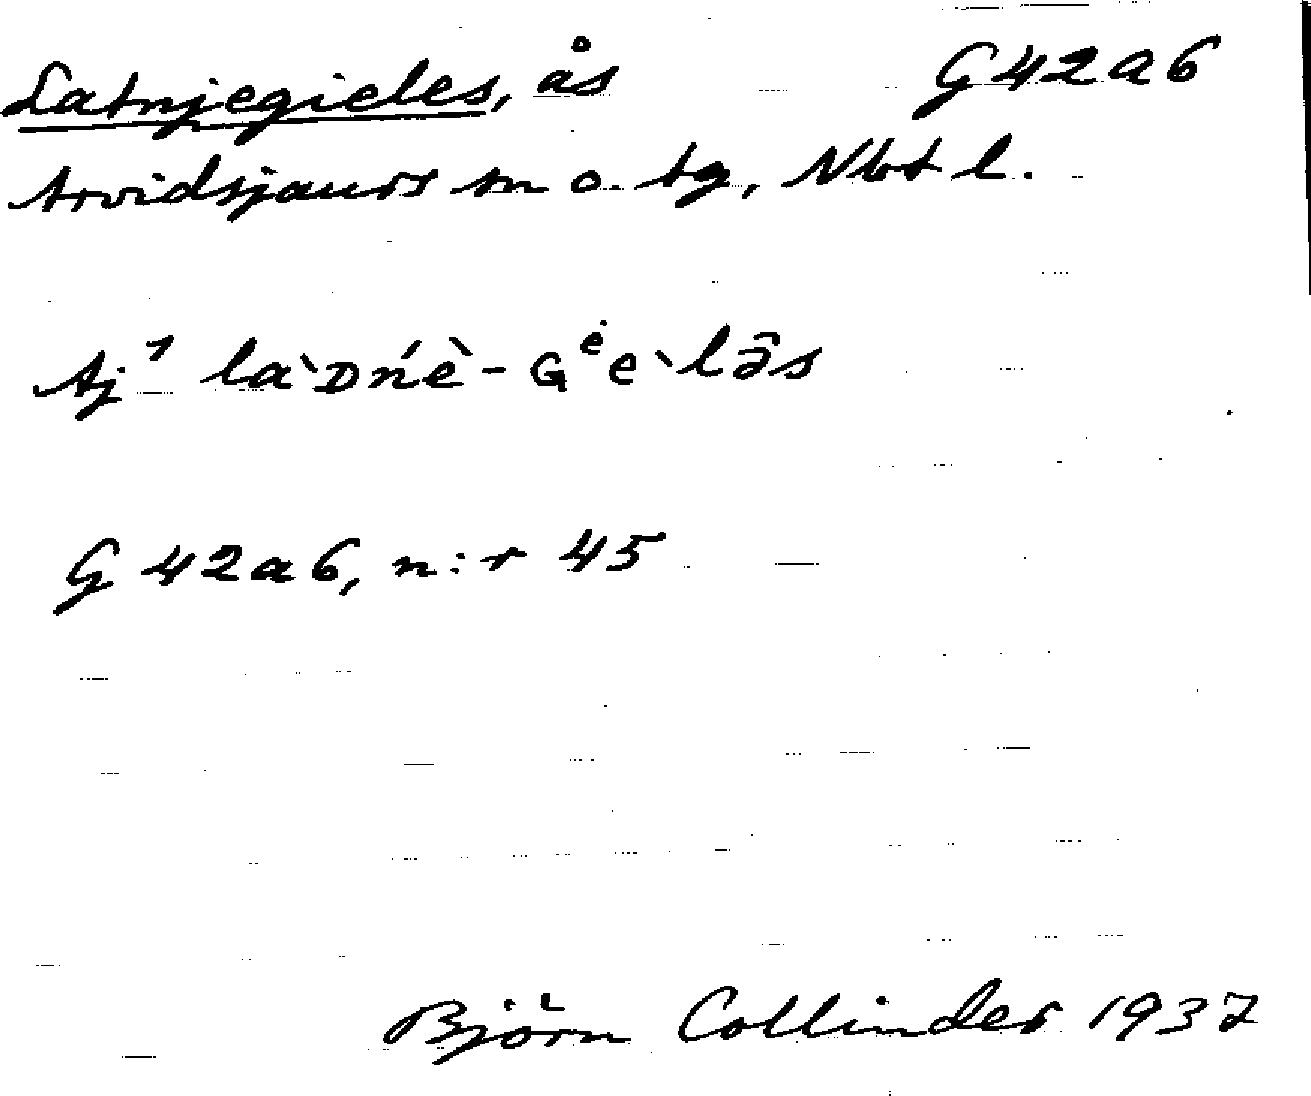 Latnjegieles, ås G42a6
Arvidsjaurs sn o. tg, Nbt l.
Aj ¹ la`ᴅńè-Gėe`lə̂s
G 42a6, n:r 45
Björn Collinder 1937